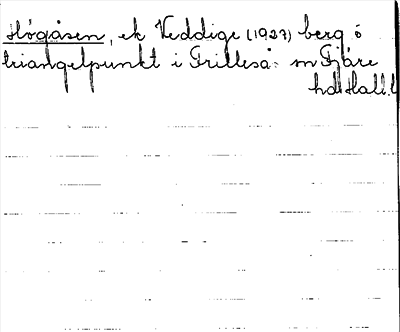 Högåsen, ek Veddige (1927) berg ö
triangelpunkt i Frilleså: sn Fjäre
hd Hall. l